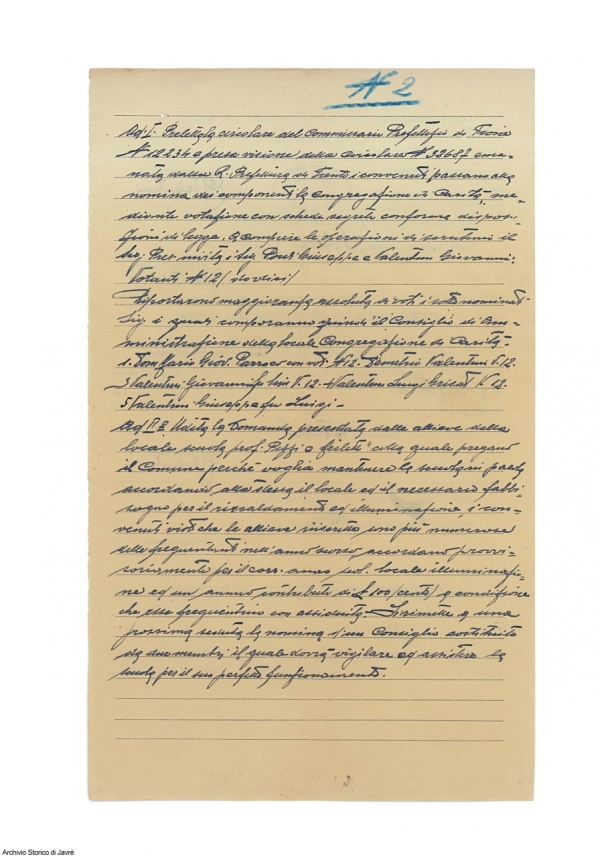 N 2
Ad. I. Preletta la circolare del Commissario Prefettizio di Tione
N 12234 e presa visione della circolare N 33687 ema-
nata dalla R. Prefettura di Trento i convenuti passano alla
nomina dei componenti la Congregazione di Carità, me-
diante votazione con schede segrete conforme disposi-
zioni di legge. A compiere le operazioni di scrutinio il
Sig. Pres. invita i Sig. Giuseppe e Valentini Giovanni:
Votanti N 12 (dodici)
Riportarono maggioranza assoluta di voti i sotto nominati
Sig. i quali comporanno quindi il Consiglio di Am-
ministrazione della locale Congregazione di Carità -
1. Don Mario Giov. Parroco con voti N 12. Demetrio Valentini V. 12.
3 Valentini Giovanni V. 12. 4 Valentini Luigi V. 12.
5 Valentini Giuseppe fu Luigi -
Ad II° Udita la Domanda presentata dalle allieve della
locale scuola prof. Pizzi e colla quale pregano
il Comune perchè voglia mantenere la scuola in paese
accordando alla stessa il locale ed il necessario fabbi-
sogno per il riscaldamento ed illuminazione, i con-
venuti visto che le allieve inscritte sono più numerose
delle frequentanti nell'anno scorso, accordano provvi-
soriamente per il corr. anno scol. locale illuminazio-
ne ed un annuo contributo di £ 100 (cento) a condizione
che esse frequentino con assiduità. Si rimette a una
prossima seduta la nomina d'un Consiglio costituito
da due membri il quale dovrà vigilare ed assistere la
scuola per il suo perfetto funzionamento.
Archivio Storico di Javrè